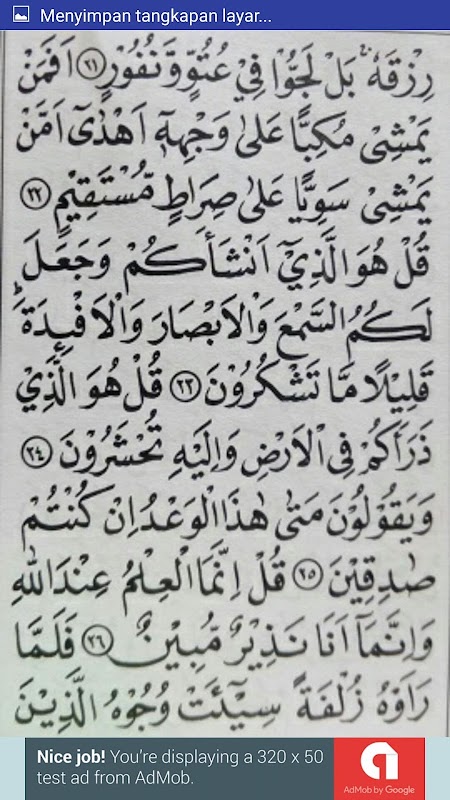 Menyimpan tangkapan layar...
رِزْقَهٗ ۚ بَلْ لَجُّوْا فِيْ عُتُوٍّ وَّنُفُوْرٍ ﴿٢١﴾ اَفَمَنْ
يَمْشِيْ مُكِبًّا عَلٰى وَجْهِهٖٓ اَهْدٰىٓ اَمَّنْ
يَمْشِيْ سَوِيًّا عَلٰى صِرَاطٍ مُّسْتَقِيْمٍ ﴿٢٢﴾
قُلْ هُوَ الَّذِيْٓ اَنْشَاَكُمْ وَجَعَلَ
لَكُمُ السَّمْعَ وَالْاَبْصَارَ وَالْاَفْـِٕدَةَ ۗ
قَلِيْلًا مَّا تَشْكُرُوْنَ ﴿٢٣﴾ قُلْ هُوَ الَّذِيْ
ذَرَاَكُمْ فِى الْاَرْضِ وَاِلَيْهِ تُحْشَرُوْنَ ﴿٢٤﴾
وَيَقُوْلُوْنَ مَتٰى هٰذَا الْوَعْدُ اِنْ كُنْتُمْ
صٰدِقِيْنَ ﴿٢٥﴾ قُلْ اِنَّمَا الْعِلْمُ عِنْدَ اللّٰهِ
وَاِنَّمَآ اَنَا۠ نَذِيْرٌ مُّبِيْنٌ ﴿٢٦﴾ فَلَمَّا
رَاَوْهُ زُلْفَةً سِيْٓـَٔتْ وُجُوْهُ الَّذِيْنَ
Nice job! You're displaying a 320 x 50
test ad from AdMob.
AdMob by Google